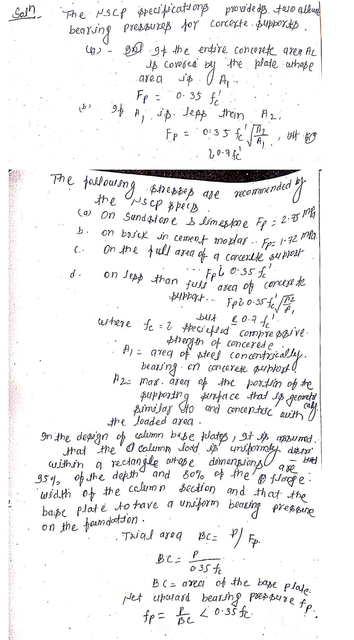 Soln The NSCP specifications provides two allow
bearing pressures for concrete supports.
(a) - If the entire concrete area A2
is covered by the plate whose
area is A1
Fp = 0.35 fc'
(b) If A1 is less than A2,
Fp = 0.35 fc' √A2/A1, but
≤ 0.7 fc'
The following stresses are recommended by
the NSCP specs
(a) On sandstone & limestone Fp = 2.75 mpa
b. on brick in cement mortar .. Fp = 1.72 mpa.
c. On the full area of a concrete support
... Fp = 0.35 fc'
d. on less than full area of concrete
support.. Fp = 0.35 fc' √A2/A1
but ≤ 0.7 fc'
where fc' = specified compressive
strength of concrete.
A1 = area of steel concentrically
bearing on concrete support
A2 = max. area of the portion of the
supporting surface that is geometrically
similar to and concentric with
the loaded area.
In the design of column base plates, it is assumed
that the column load is uniformly
within a rectangle whose dimensions are
95% of the depth and 80% of the flange
width of the column section and that the
base plate to have a uniform bearing pressure
on the foundation.
Trial area BC = P/Fp
BC = P/0.35 fc
BC = area of the base plate.
Net upward bearing pressure fp.
fp = P/BC < 0.35 fc